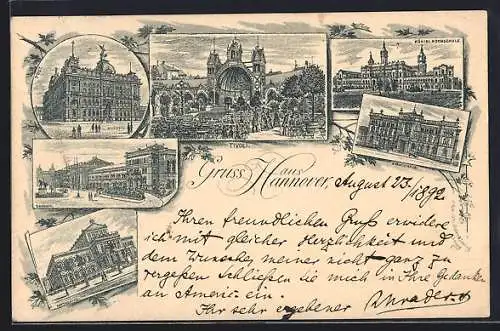 KÖNIGL. HOCHSCHULE
TIVOLI
Gruss aus
Hannover, August 23/1892
Ihren freundlichen Gruß erwidere
ich mit gleicher Herzlichkeit und
dem Wunsche, meiner nicht ganz zu
vergeßen. Schließen Sie mich in Ihre Gedanken
an Americ ein.
Ihr sehr ergebener